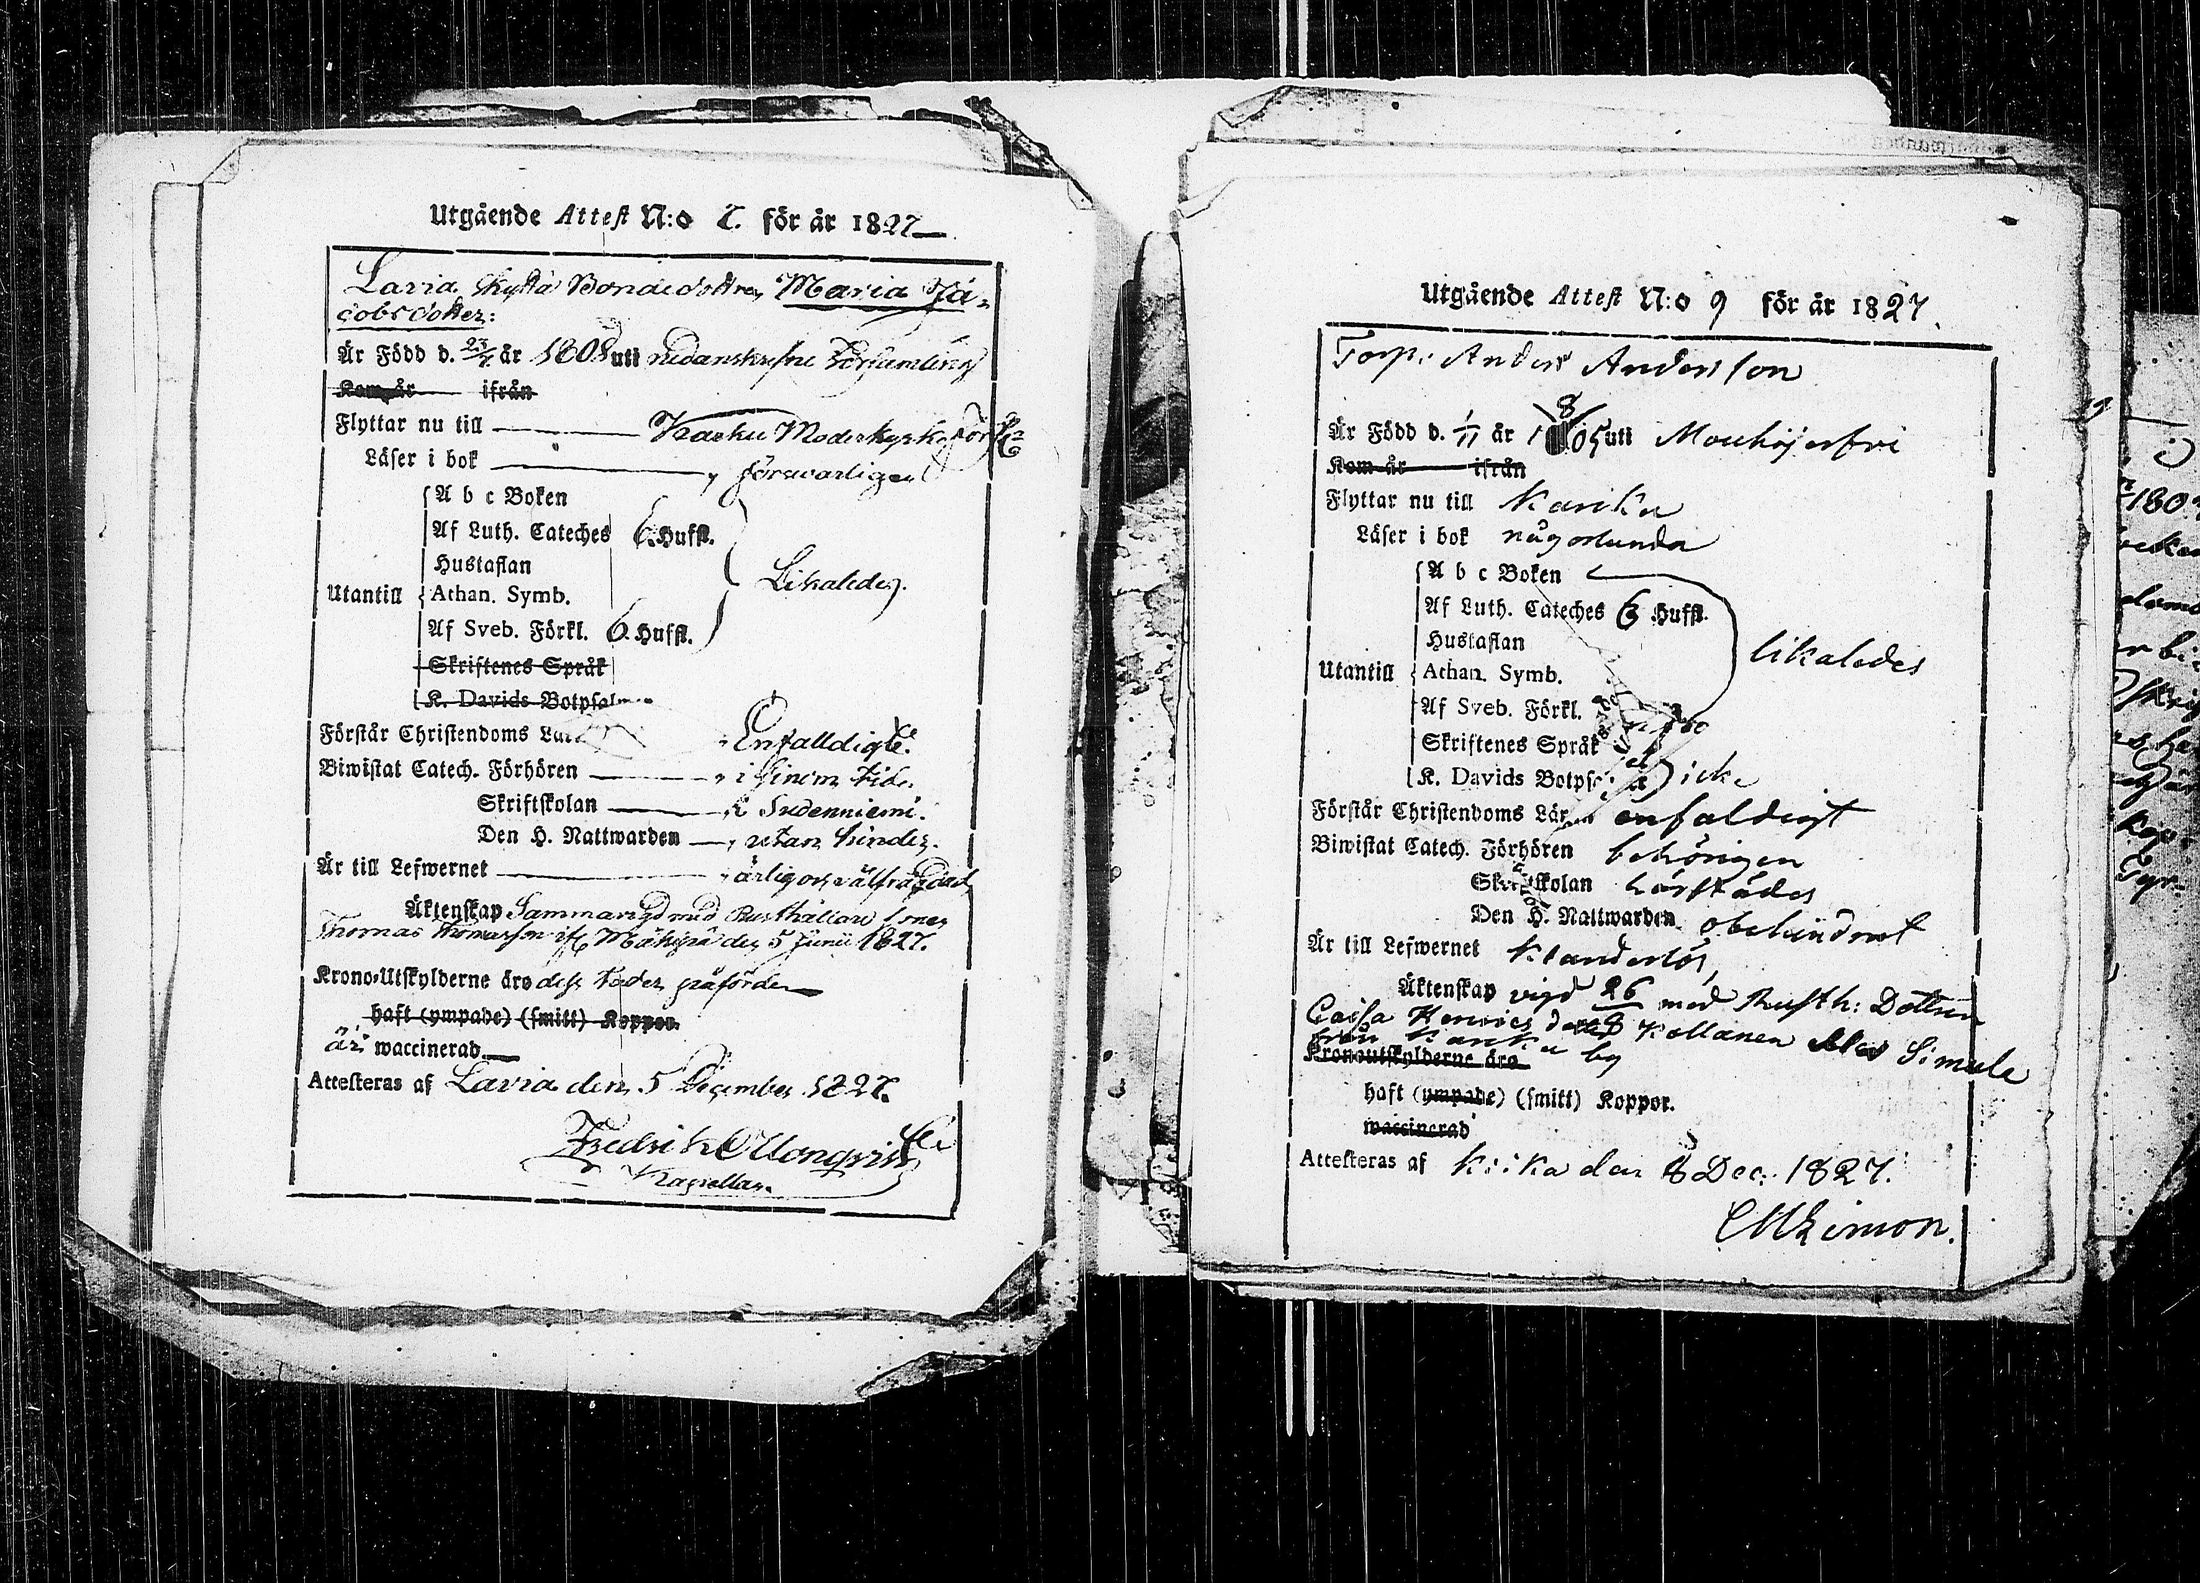 Utgående Attest N:o 7. för år 1827
Lavia Kyttä Bondedottren Maria Ja-
cobsdotter:
Är Född d. 23/4 år 1808 uti nedanskrefne Församling
Kom år ifrån
Flyttar nu till Karku Moderkyrko
Läser i bok försvarligen
A b c Boken
Af Luth. Cateches 6. Hufst.
Hustaflan
Likaledes.
Utantill Athan. Symb.
Af Sveb. Förkl. 6. Hufst.
Skriftenes Språk
K. Davids Botpsalmer
Förstår Christendoms Enfalldigt.
Biwistat Catech. Förhören i sinom tid.
Skriftskolan i Sudenniemi.
Den H. Nattwarden utan hinder.
Är till Lefwernet ärlig och välfrägdad
Äktenskap Sammanvigd med Rusthållare Sonen
Thomas Thomasson ifr. den 5 Junii 1827.
Krono-Utskylderne äro dess Fader påförde
haft (ympade) (smitt) Koppor.
är waccinerad
Attesteras af Lavia den 5 December 1827.
Fredrik
Kapellan.
Utgående Attest N:o 9 för år 1827.
Torp. Anders Andersson
Är Född d. 1/11 år 1805 uti Mouhijerfvi
Kom år ifrån
Flyttar nu till Karku
Läser i bok någorlunda
A b c Boken
Af Luth. Cateches 6 Hufst.
Hustaflan
likaledes
Utantill Athan. Symb.
Af Sveb. Förkl.
Skriftenes Språk
K. Davids Botps icke
Förstår Christendoms Lär enfaldigt
Biwistat Catech. Förhören behörigen
Skriftskolan härstädes
Den H. Nattwarden obehindrat
Är till Lefwernet klanderlös
Äktenskap vigd 26 med Rusth: Dottren
Caisa Henrics dotter Simula
från Karku by
Kronoutskylderne äro
haft (ympade) (smitt) Koppor.
waccinerad
Attesteras af Kiika den 8 Dec: 1827.